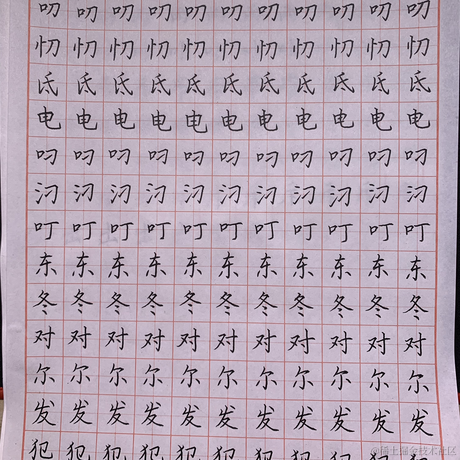 叨叨叨叨叨叨叨叨叨叨叨
忉忉忉忉忉忉忉忉忉忉忉
氐氐氐氐氐氐氐氐氐氐氐
电电电电电电电电电电电
叼叼叼叼叼叼叼叼叼叼叼
汈汈汈汈汈汈汈汈汈汈汈
叮叮叮叮叮叮叮叮叮叮叮
东东东东东东东东东东东
冬冬冬冬冬冬冬冬冬冬冬
对对对对对对对对对对对
尔尔尔尔尔尔尔尔尔尔尔
发发发发发发发发发发发
犯犯犯犯犯犯犯犯犯犯犯
@稀土掘金技术社区